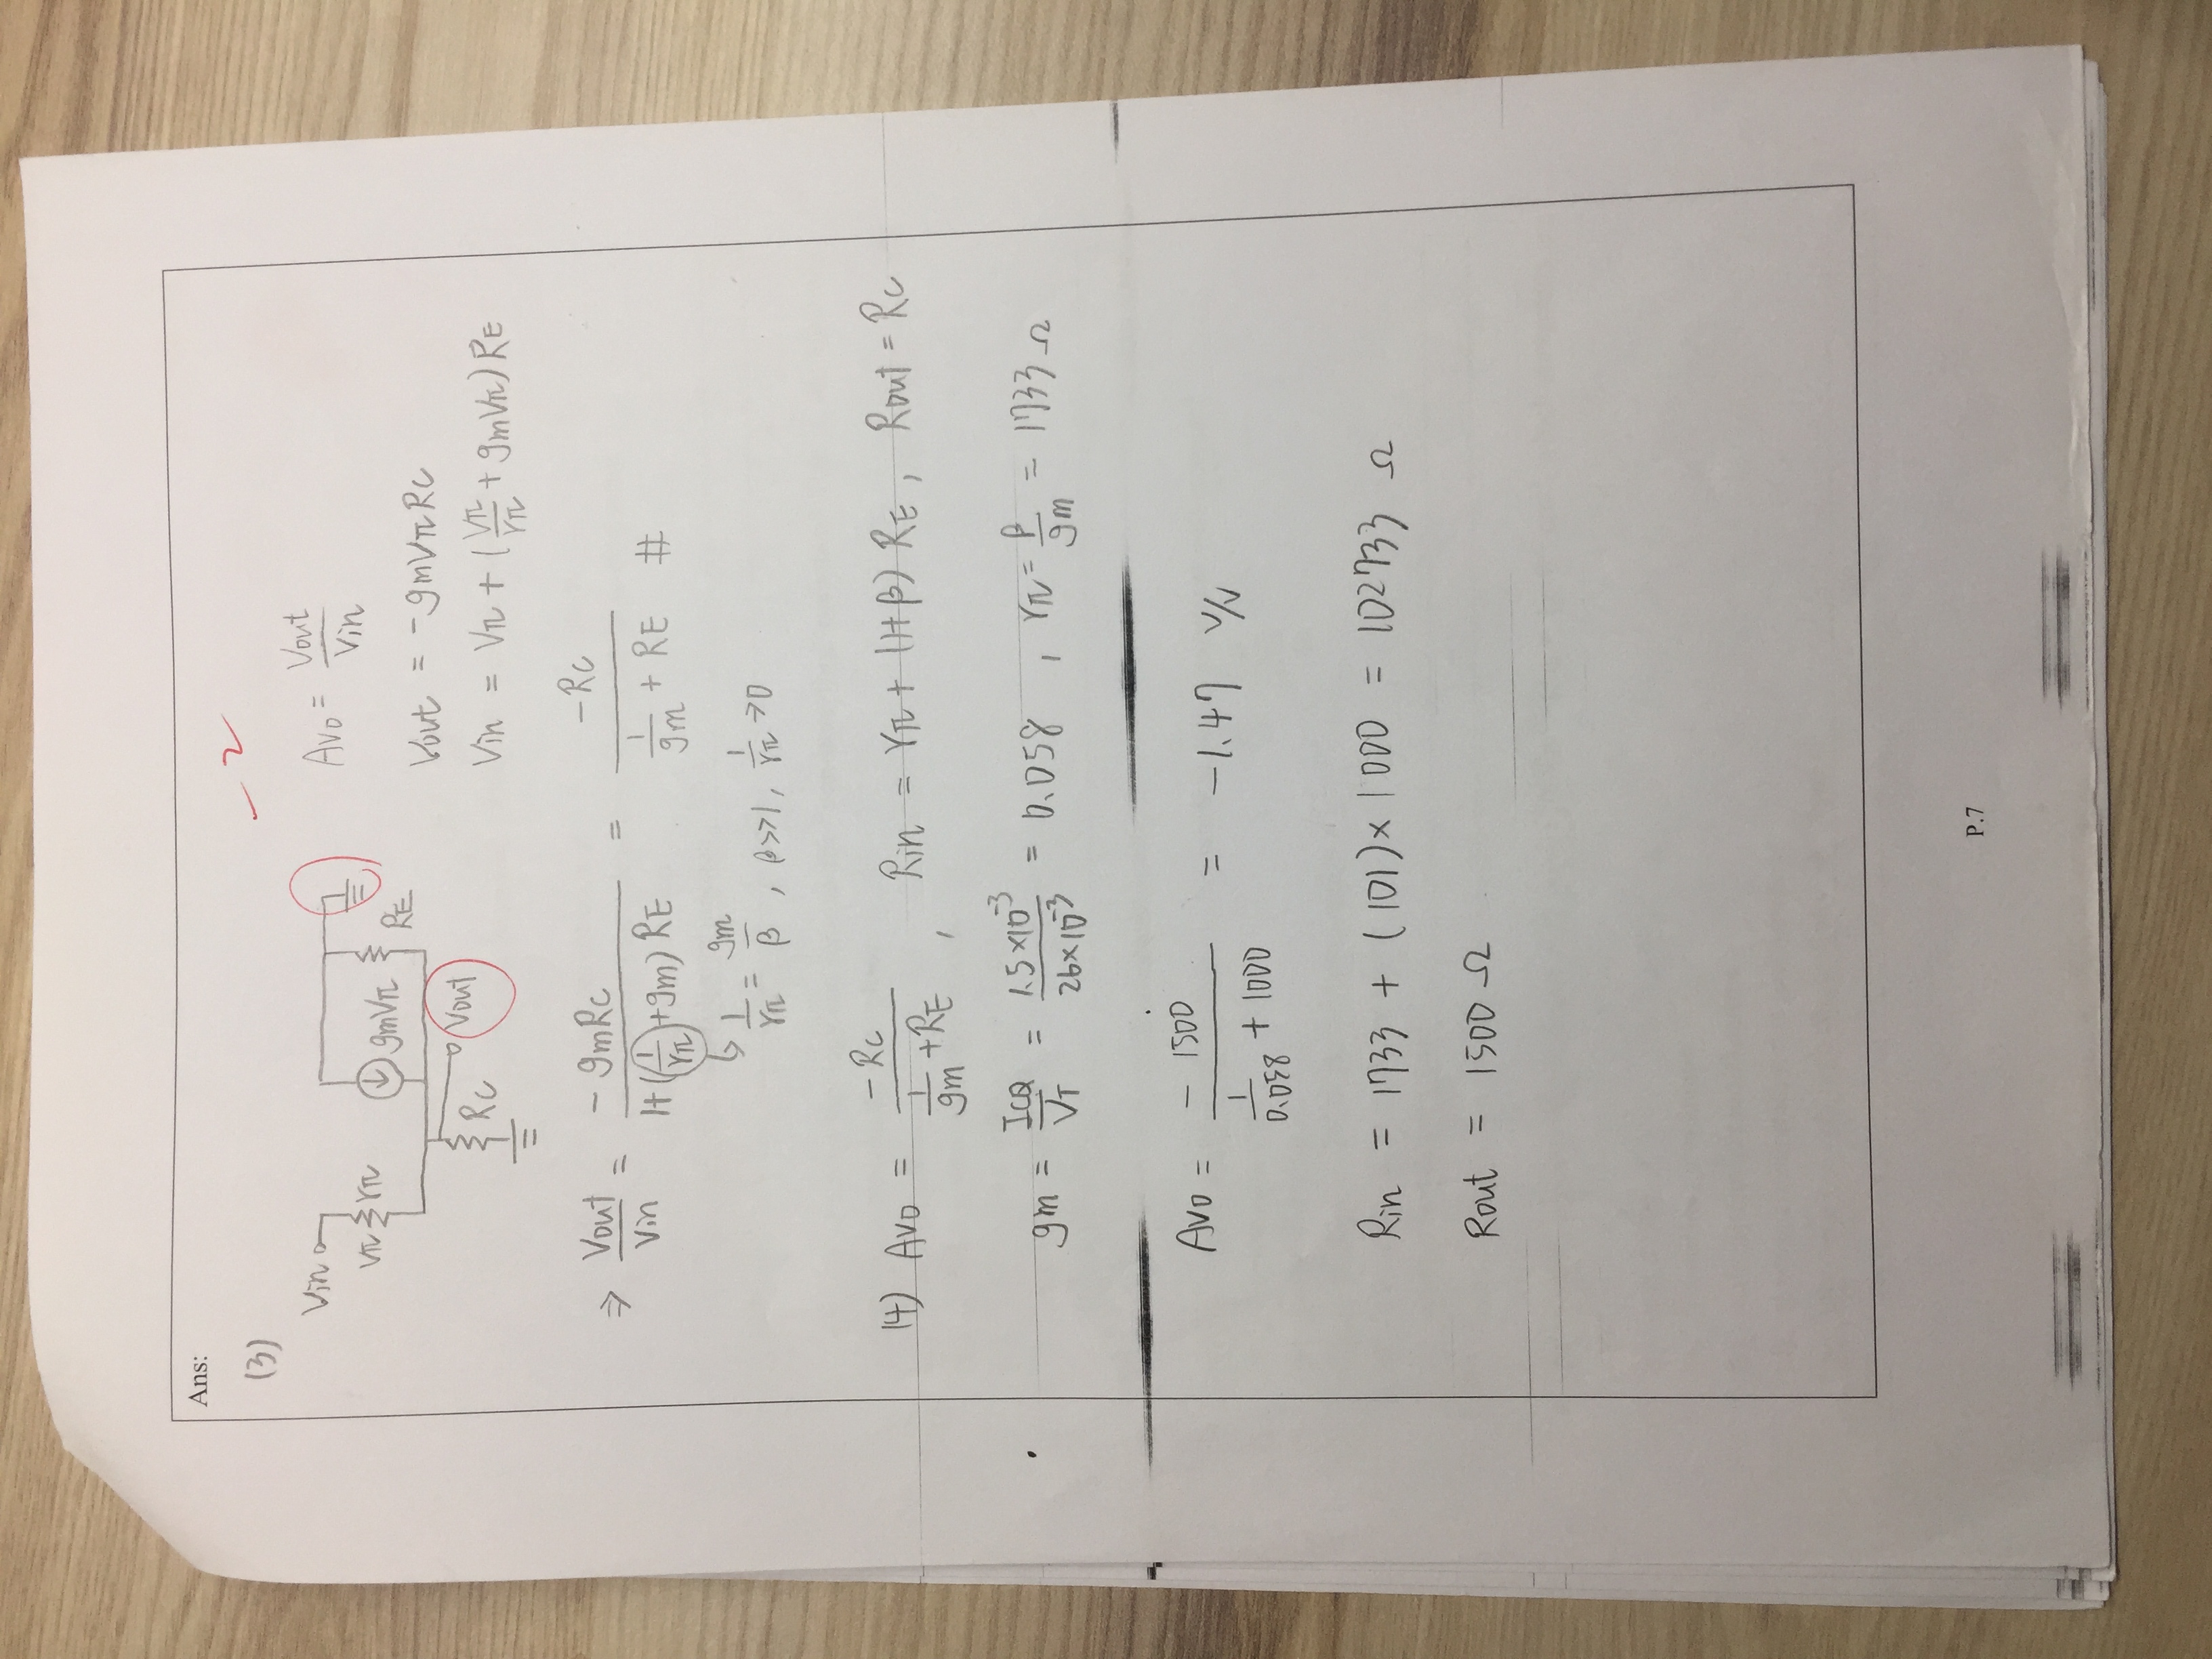 Ans:
-2
(3)
Vin
Vπ rπ gmVπ RE
Vout
RC
Avo = Vout / Vin
Vout = -gmVπRC
Vin = Vπ + (Vπ/rπ + gmVπ) RE
⇒ Vout/Vin = -gmRC / (1+(1/rπ+gm) RE) = -RC / (1/gm + RE) #
↳ 1/rπ = gm/β , β>>1, 1/rπ → 0
(4) Avo = -RC / (1/gm + RE) , Rin = rπ + (1+β) RE , Rout = RC
gm = ICQ/VT = 1.5×10⁻³ / 26×10⁻³ = 0.058 , rπ = β/gm = 1733 Ω
Avo = -1500 / (1/0.058 + 1000) = -1.47 V/V
Rin = 1733 + (101)×1000 = 102733 Ω
Rout = 1500 Ω
P.7